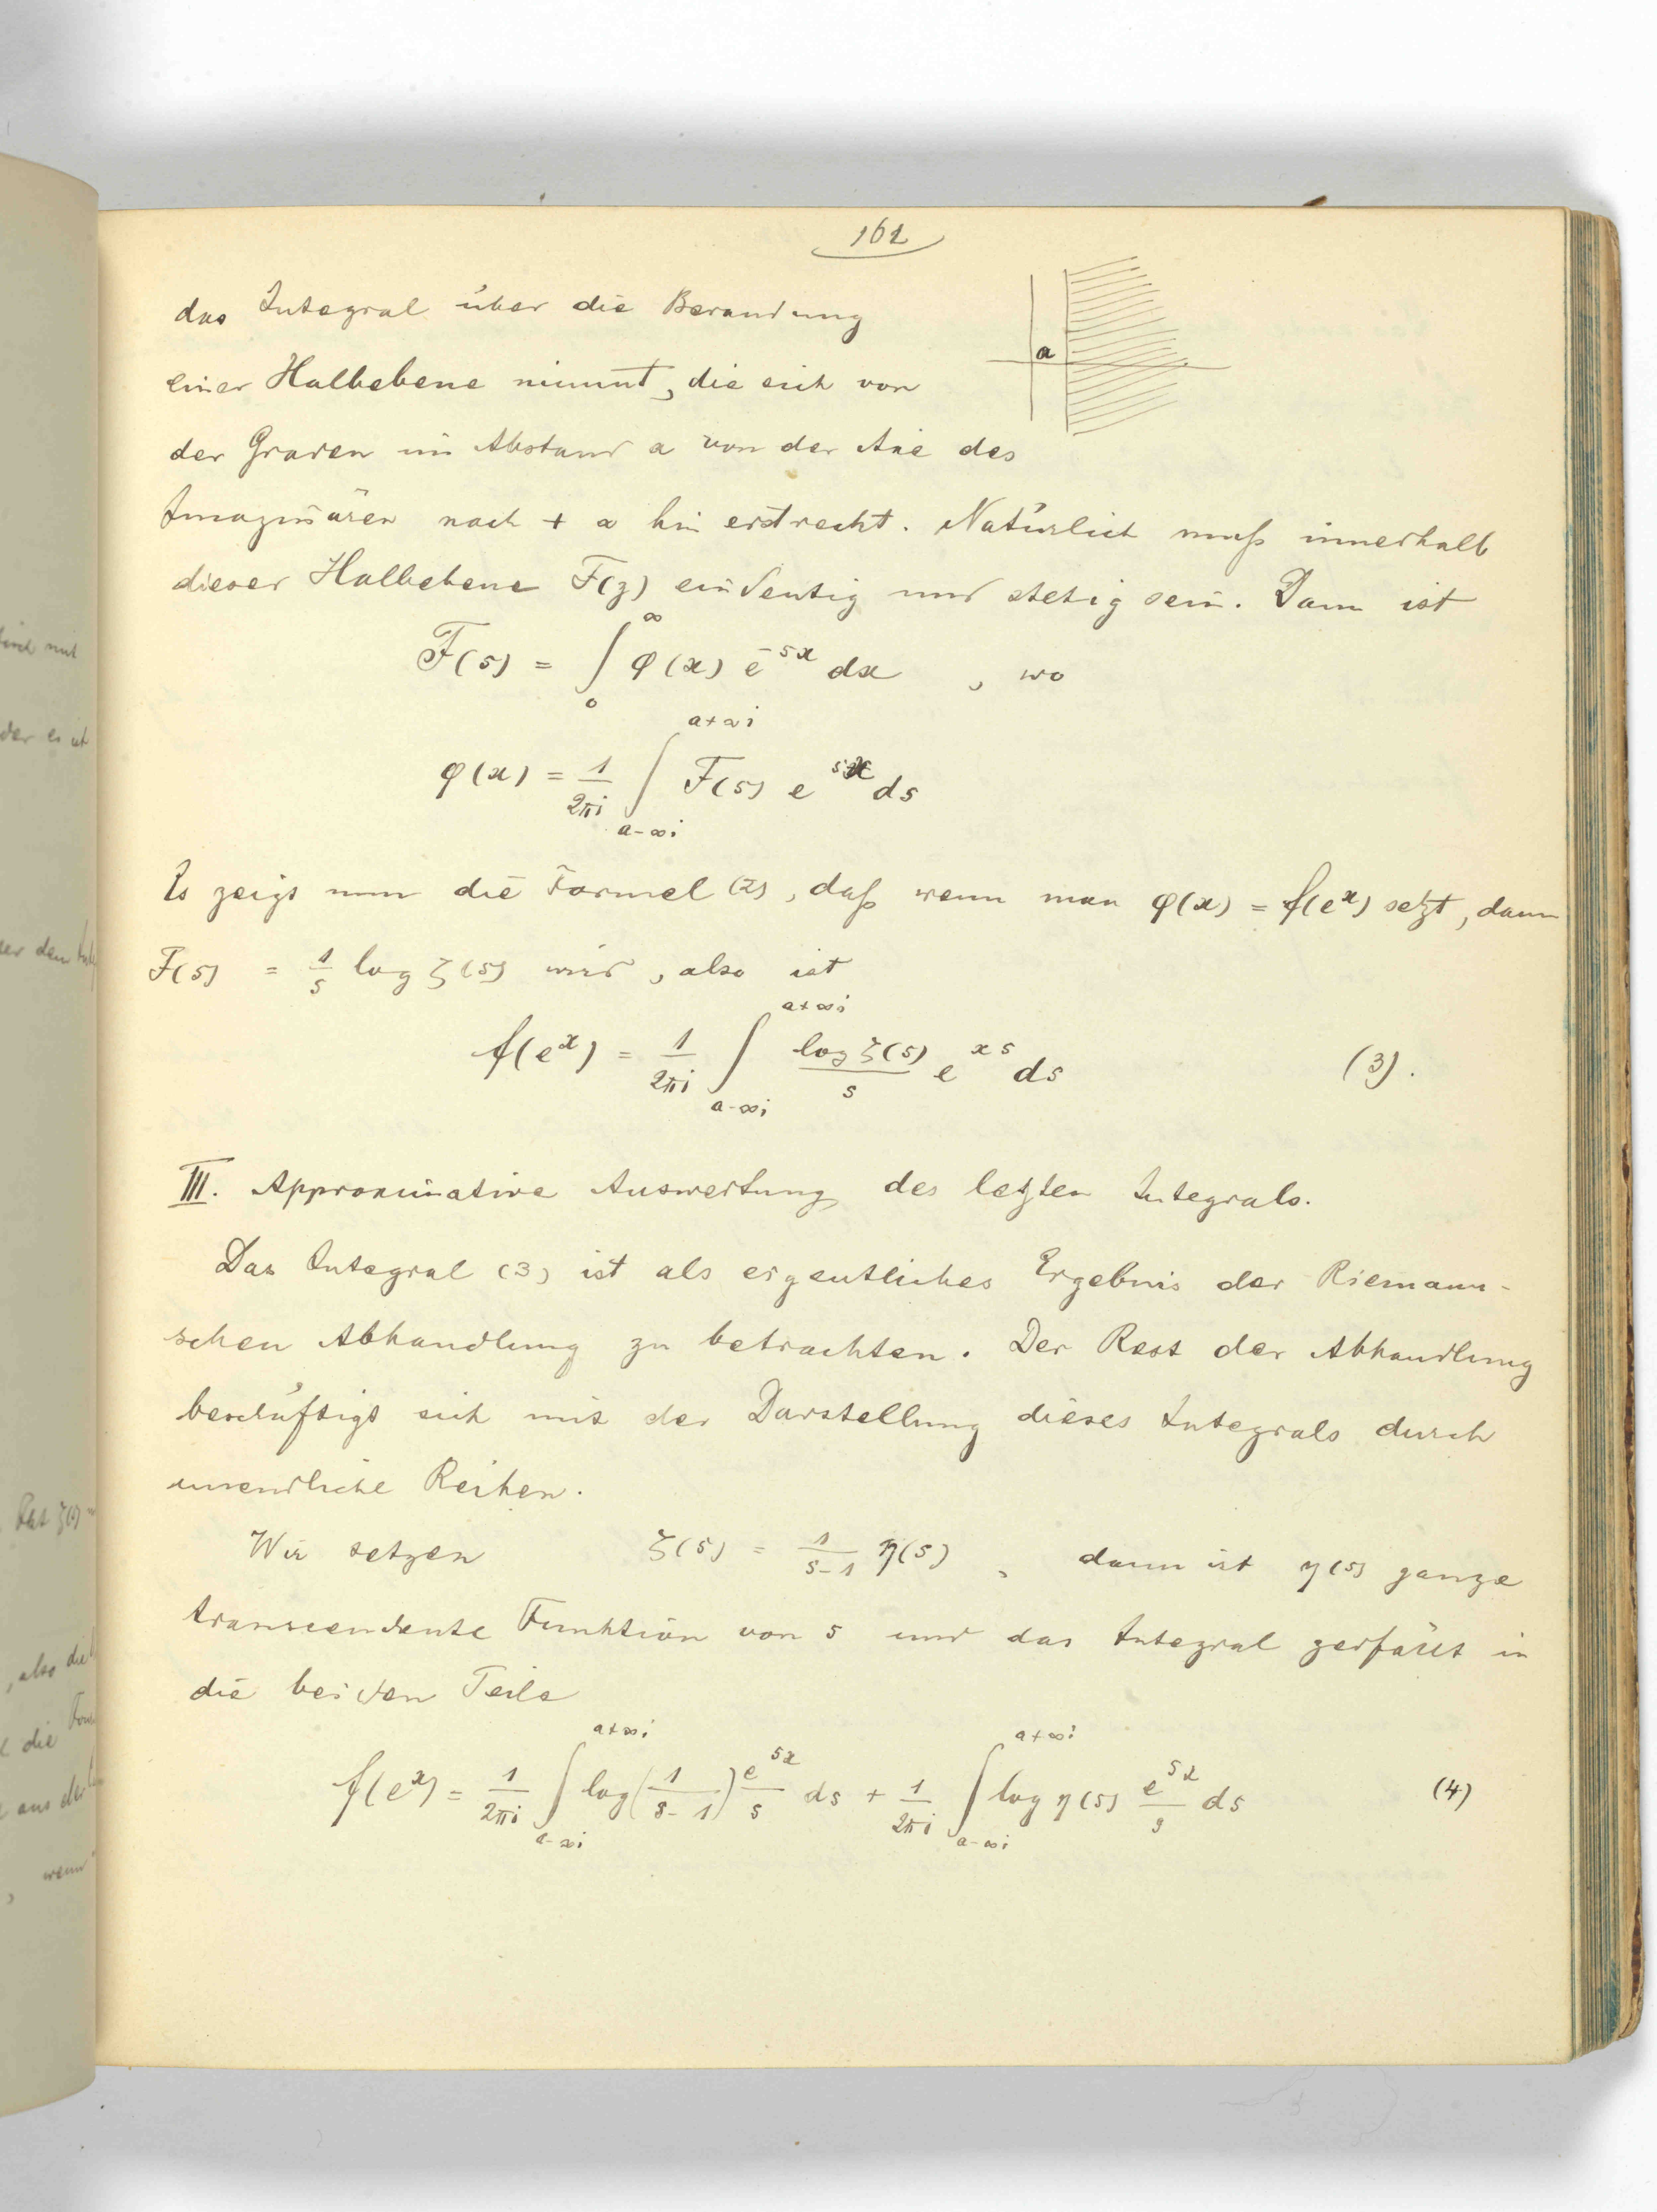 161
das Integral über die Berandung
einer Halbebene nimmt, die sich von
der Graden im Abstand a von der Axe des
Imaginären nach + ∞ hin erstreckt. Natürlich muß innerhalb
dieser Halbebene F(z) eindeutig und stetig sein. Dann ist
F(s) = ∫₀^∞ φ(x) e^{-sx} dx , wo
φ(x) = 1/2πi ∫_{a-∞i}^{a+∞i} F(s) e^{sx} ds
Es zeigt nun die Formel (2), daß wenn man φ(x) = f(e^x) setzt, dann
F(s) = 1/s log ζ(s) wird, also ist
f(e^x) = 1/2πi ∫_{a-∞i}^{a+∞i} log ζ(s)/s e^{xs} ds (3).
III. Approximative Auswertung des letzten Integrals.
Das Integral (3) ist als eigentliches Ergebnis der Riemann-
schen Abhandlung zu betrachten. Der Rest der Abhandlung
beschäftigt sich mit der Darstellung dieses Integrals durch
unendliche Reihen.
Wir setzen ζ(s) = 1/s-1 η(s) , dann ist η(s) ganze
transcendente Funktion von s und das Integral zerfällt in
die beiden Teile
f(e^x) = 1/2πi ∫_{a-∞i}^{a+∞i} log(1/s-1) e^{sx}/s ds + 1/2πi ∫_{a-∞i}^{a+∞i} log η(s) e^{sx}/s ds (4)